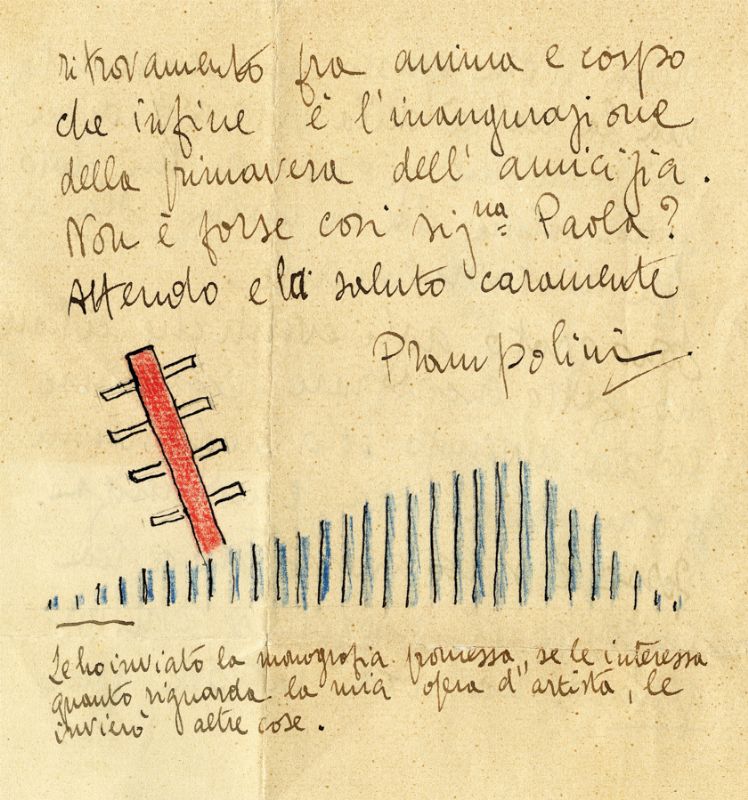 ritrovamento fra anima e corpo
che infine è l'inaugurazione
della primavera dell'amicizia.
Non è forse così sigⁿᵃ Paola?
Attendo e la saluto caramente
Prampolini
Le ho inviato la monografia promessa, se le interessa
quanto riguarda la mia opera d'artista, le
invierò altre cose.